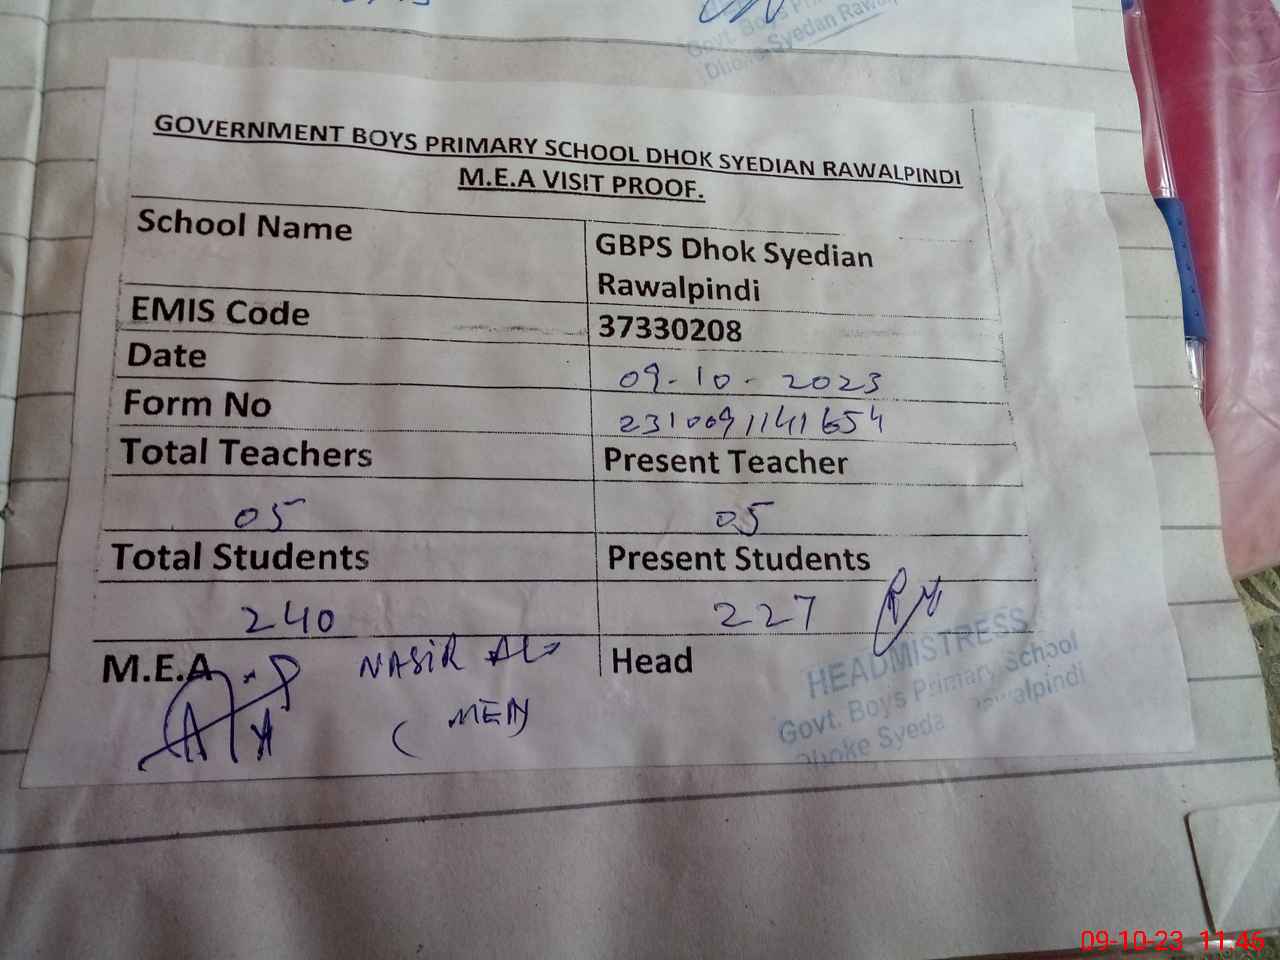 Govt. Boys Pri
Dhoke Syedan Rawalp
GOVERNMENT BOYS PRIMARY SCHOOL DHOK SYEDIAN RAWALPINDI
M.E.A VISIT PROOF.
School Name
GBPS Dhok Syedian
Rawalpindi
EMIS Code 37330208
Date 09-10-2023
Form No 2310091141654
Total Teachers Present Teacher
05 05
Total Students Present Students
240 227
M.E.A NASIR Head
HEADMISTRESS
Govt. Boys Primary School
Dhoke Syeda walpindi
09-10-23 11:46